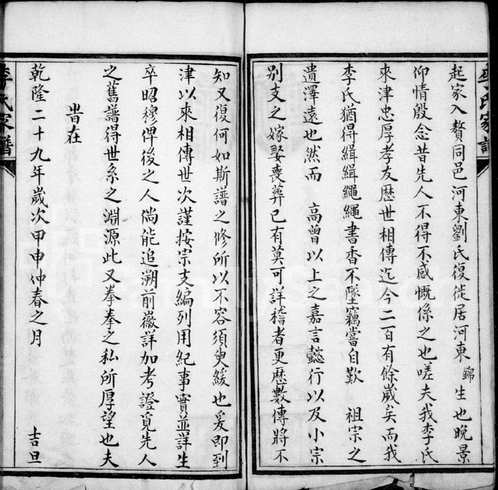 起家入贅同邑河東劉氏復徙居河東錦生也晚景
仰情殷念昔先人不得不感慨係之也嗟夫我李氏
來津忠厚孝友歷世相傳迄今二百有餘歲矣而我
李氏猶得緝緝繩繩書香不墜竊嘗自歎 祖宗之
遺澤遠也然而 高曾以上之嘉言懿行以及小宗
別支之嫁娶喪葬已有莫可詳稽者更歷數傳將不
李氏家譜
知又復何如斯譜之修所以不容須臾緩也爰即到
津以來相傳世次謹按宗支編列用紀事實並詳生
卒昭穆俾後之人倘能追溯前徽詳加考證覓先人
之舊譜得世系之淵源此又拳拳之私所厚望也夫
旹在
乾隆二十九年歲次甲申仲春之月 吉旦
李氏家譜